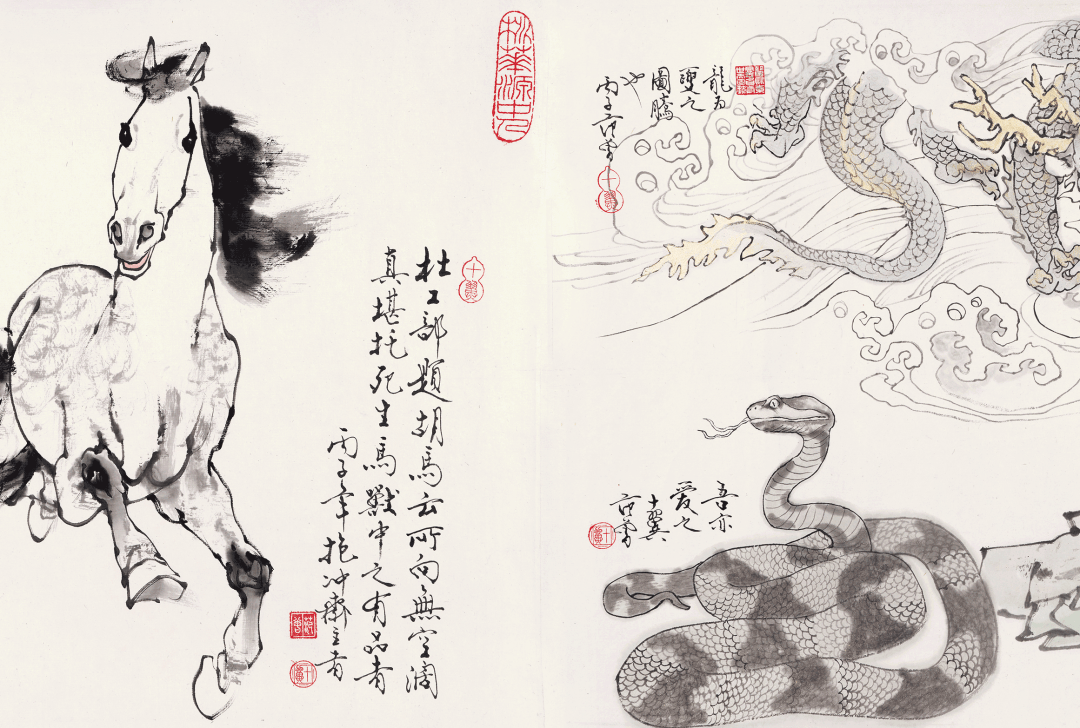 桃華源中人
杜工部題胡馬云所向無空闊
真堪托死生馬獸中之有品者
丙子年抱冲齋主者
十翼
范曾
龍为
之
圖騰
也
丙子范曾
十翼
吾亦
愛之
十翼
范曾